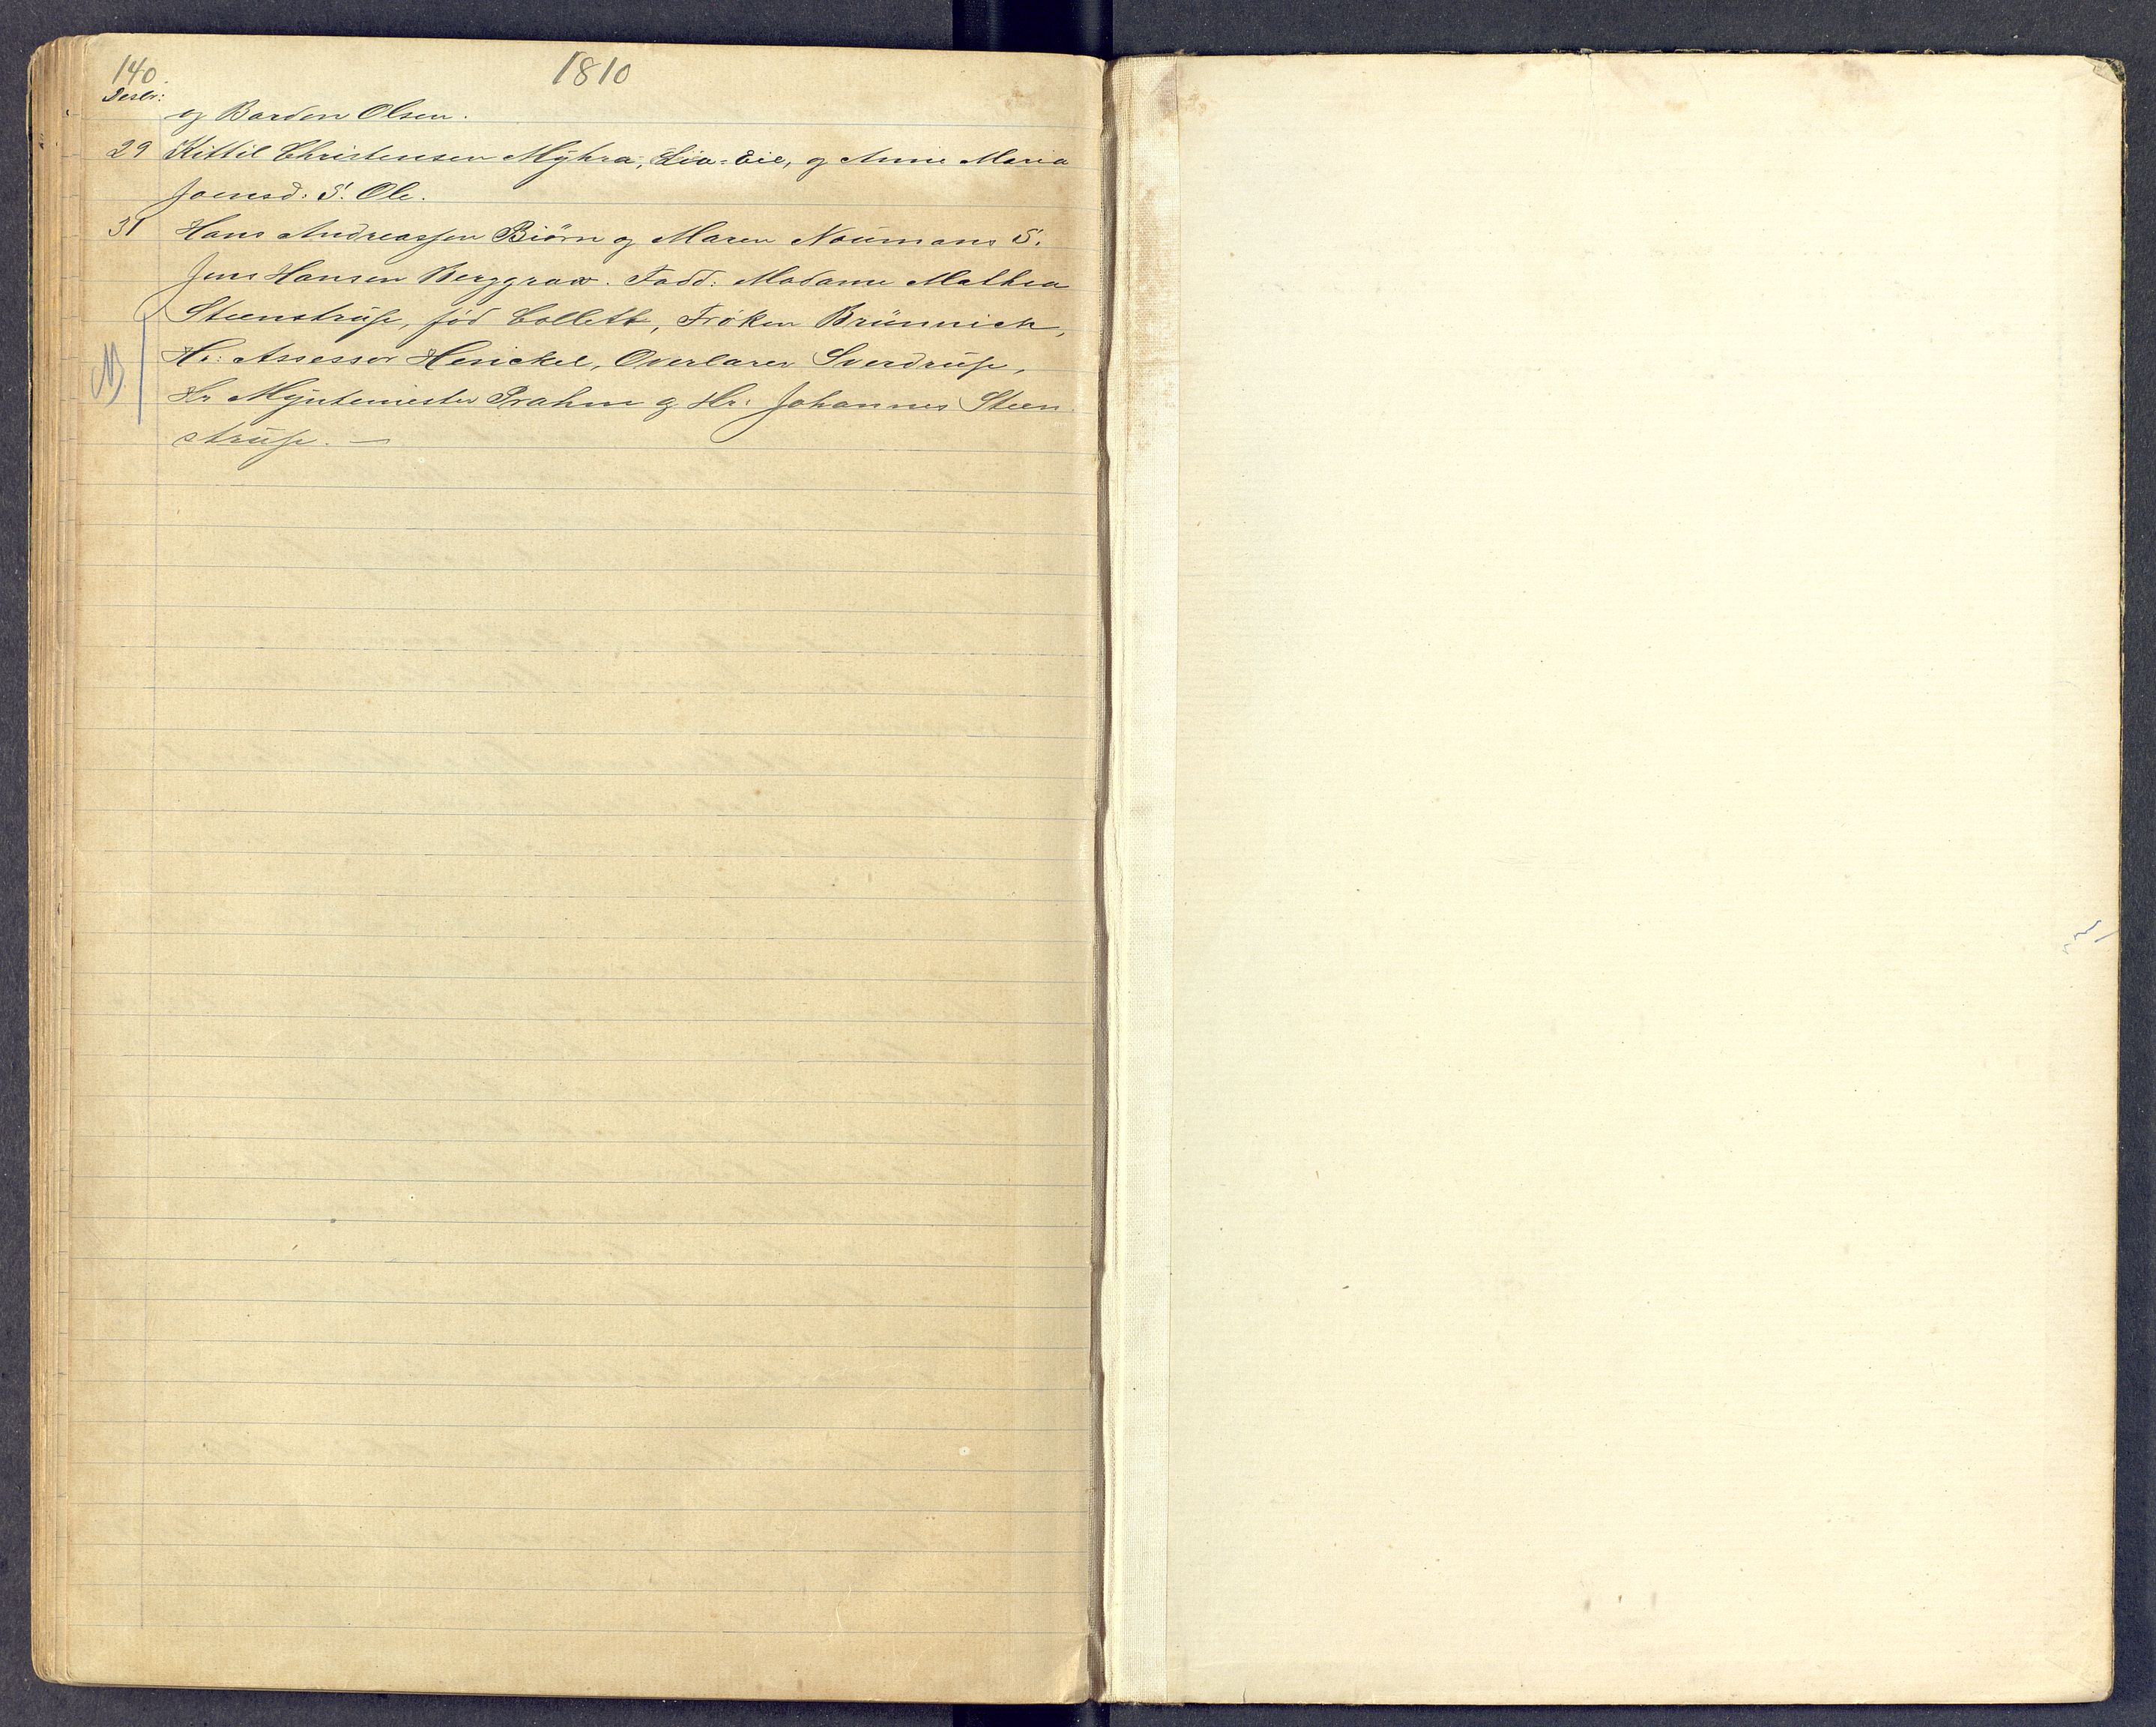 140.
1810
Decbr:
og Barden Olsen.
29 Kittil Christensen Myhra, Lia-Eie, og Anne Maria
Joensd: S. Ole.
31 Hans Andreassen Biørn og Maren Noumans S.
Jens Hansen Berggrav. Fadd: Madame Mathea
Steenstrup, fød Collett, Frøken Brünnich,
Hr: Assessor Henickel, Overlærer Sverdrup,
Hr Myntemester Prahm og Hr: Johannes Steen
strup. —